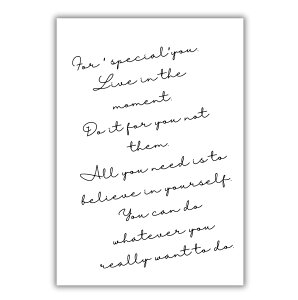 For ' special' you.
Live in the
moment.
Do it for you not
them.
All you need is to
believe in yourself.
You can do
whatever you
really want to do.